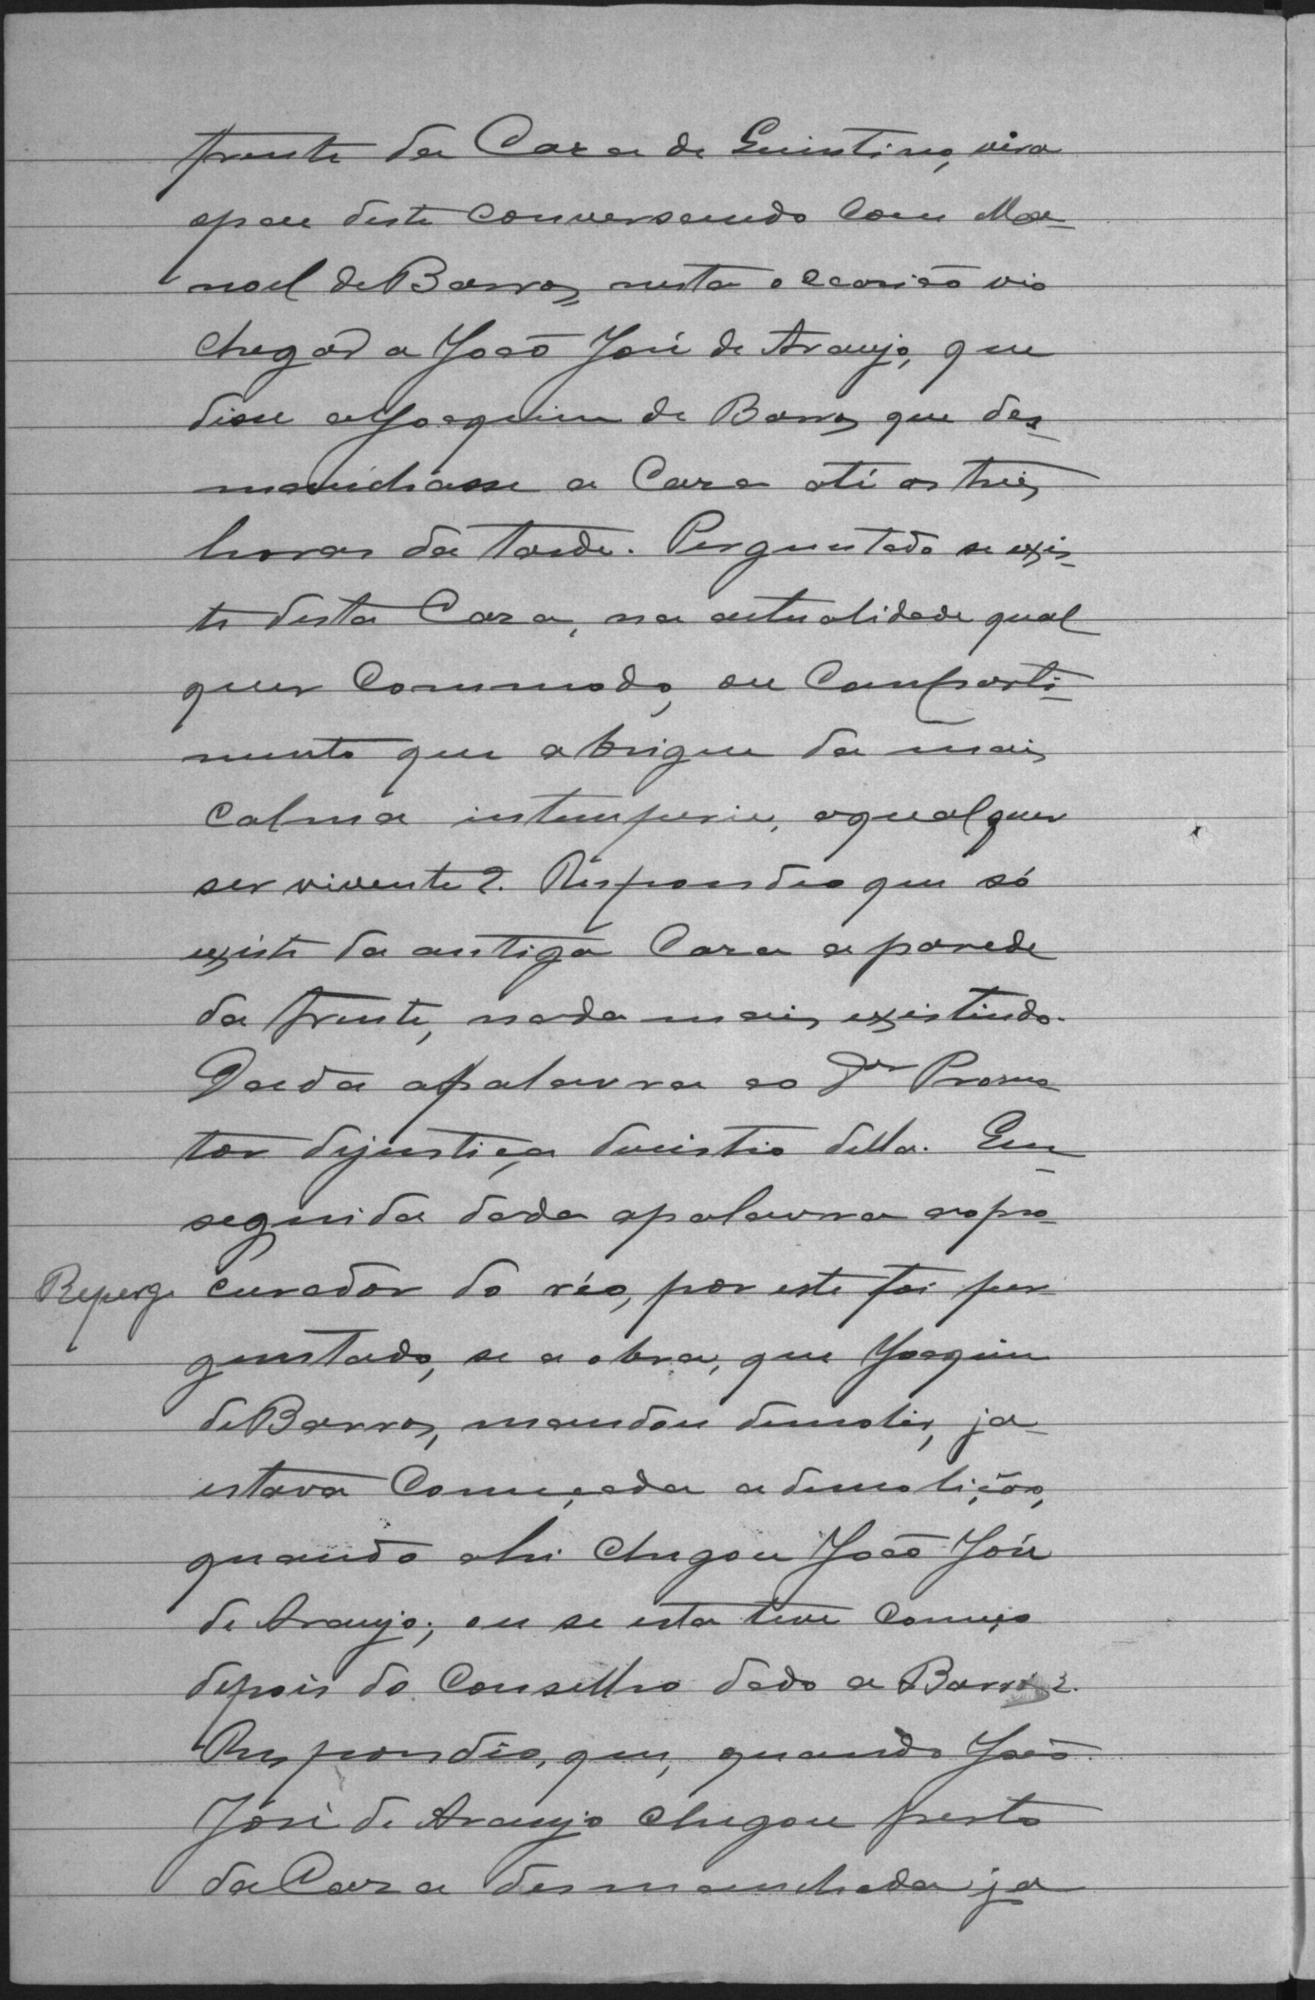 frente da Caza de Quintino, vira
apau deste conversando com Ma-
noel de Barros, nesta occasião vio
chegar a João José de Araujo, que
disse a Joaquim de Barros que des-
manchasse a Caza até as trez
horas da tarde. Perguntado se exis-
te desta Caza, na actualidade qual
quer Commodo, ou Comparti-
mento que abrigue da mais
calma intemperie, aqualquer
ser vivente?. Respondeo que só
existe da antiga Caza a parede
da frente, nada mais existindo.
Dada apalavra ao Dor Promo
tor dejustiça desistio della. Em
seguida dada apalavra ao pro-
Reperg curador do réo, por este foi per
guntado, se a obra, que Joaquim
de Barros, mandou demolir, ja
estava Começada a demolição,
quando ahi chegou João José
de Araujo; ou se esta teve começo
depois do Conselho dado a Barros?.
Respondeo, que, quando João
José de Araujo chegou perto
da Caza desmanchada ja